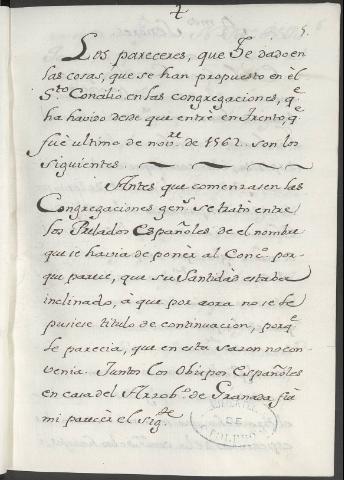 5.
Los pareceres, que hè dado en
las cosas, que se han propuesto en èl
S.to Concilio en las congregaciones, q.e
ha havido desde que entrè en Trento, q.e
fuè ultimo de nov.re de 1562. son los
siguientes
Antes que comenzasen las
Congregaciones gen.s se tratò entre
los Prelados Españoles de el nombre
que se havia de ponèr al Conc.o por-
que parece, que su Santidàd estaba
inclinado, à que por aora no se le
pusiese titulo de continuacion, porq.e
le parecia, que en esta sazon no con-
venia. Juntos los Obispos Españoles
en casa del Arzob.o de Granada fuè
mi parecèr el sig.te